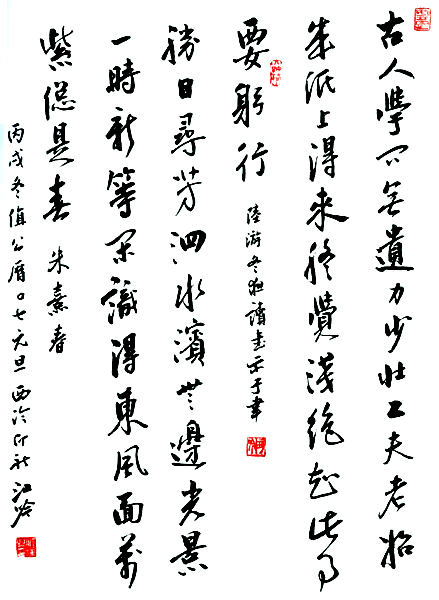 古人學問無遺力少壯工夫老始
成紙上得來終覺淺絕知此事
要躬行 陸游冬夜讀書示子聿
勝日尋芳泗水濱無邊光景
一時新等閒識得東風面萬
紫總是春 朱熹春
丙戌冬值公曆〇七元旦西泠印社江吟